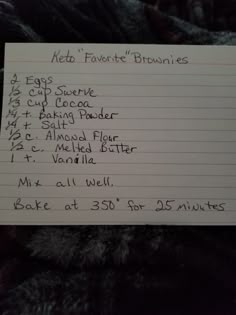 Keto "Favorite" Brownies
2 Eggs
½ cup Swerve
⅓ cup Cocoa
¼ t. Baking Powder
¼ t. Salt
½ c. Almond Flour
½ c. Melted Butter
1 t. Vanilla
Mix all well.
Bake at 350° for 25 minutes